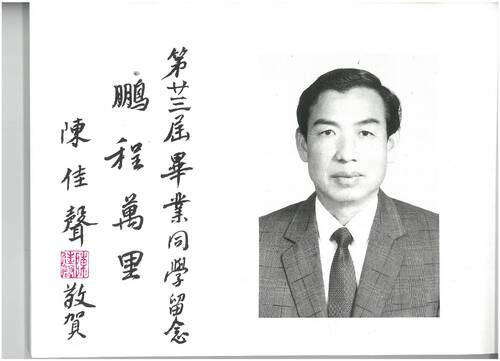 第廿三屆畢業同學留念
鵬程萬里
陳佳聲敬賀